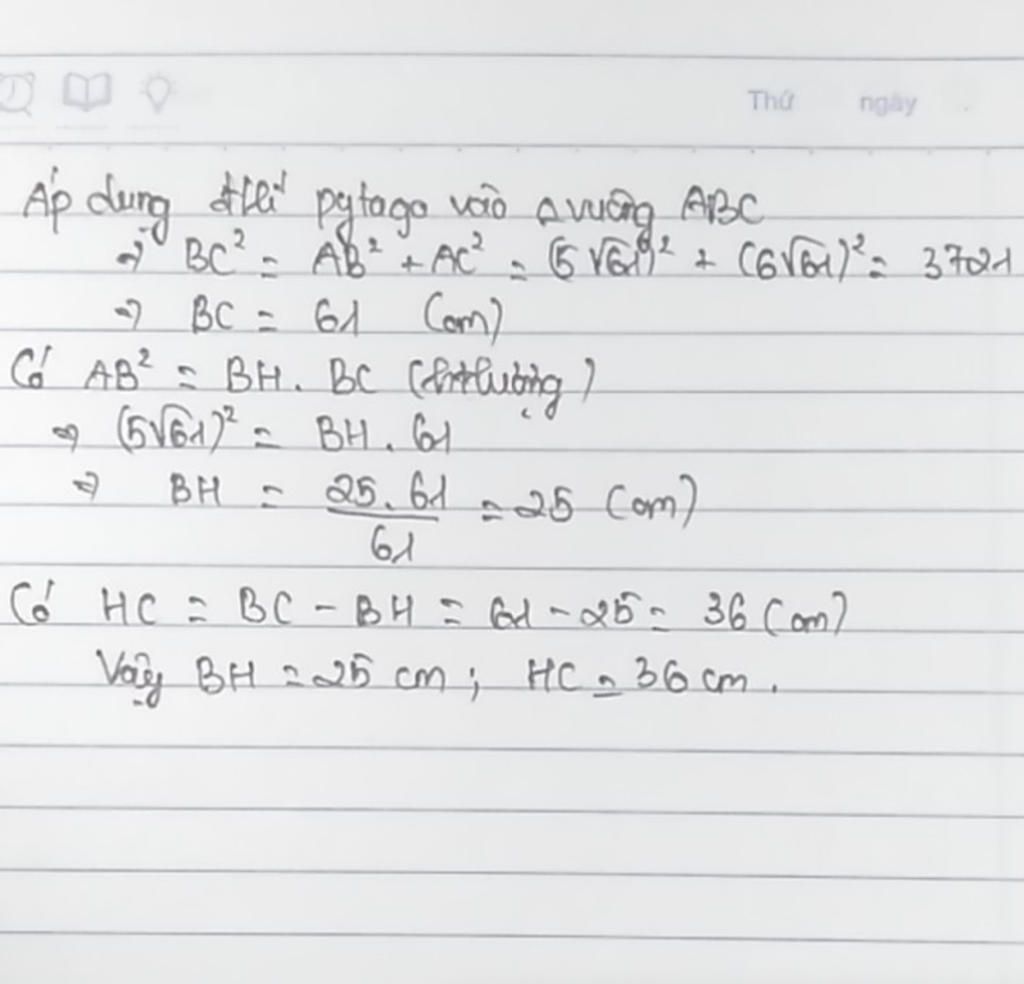 Thứ ngày
Áp dụng đlí pytago vào Δ vuông ABC
⇒ BC² = AB² + AC² = (5√61)² + (6√61)² = 3721
⇒ BC = 61 (cm)
Có AB² = BH . BC (htlượng)
⇒ (5√61)² = BH . 61
⇒ BH = 25 . 61 / 61 = 25 (cm)
Có HC = BC - BH = 61 - 25 = 36 (cm)
Vậy BH = 25 cm ; HC = 36 cm .